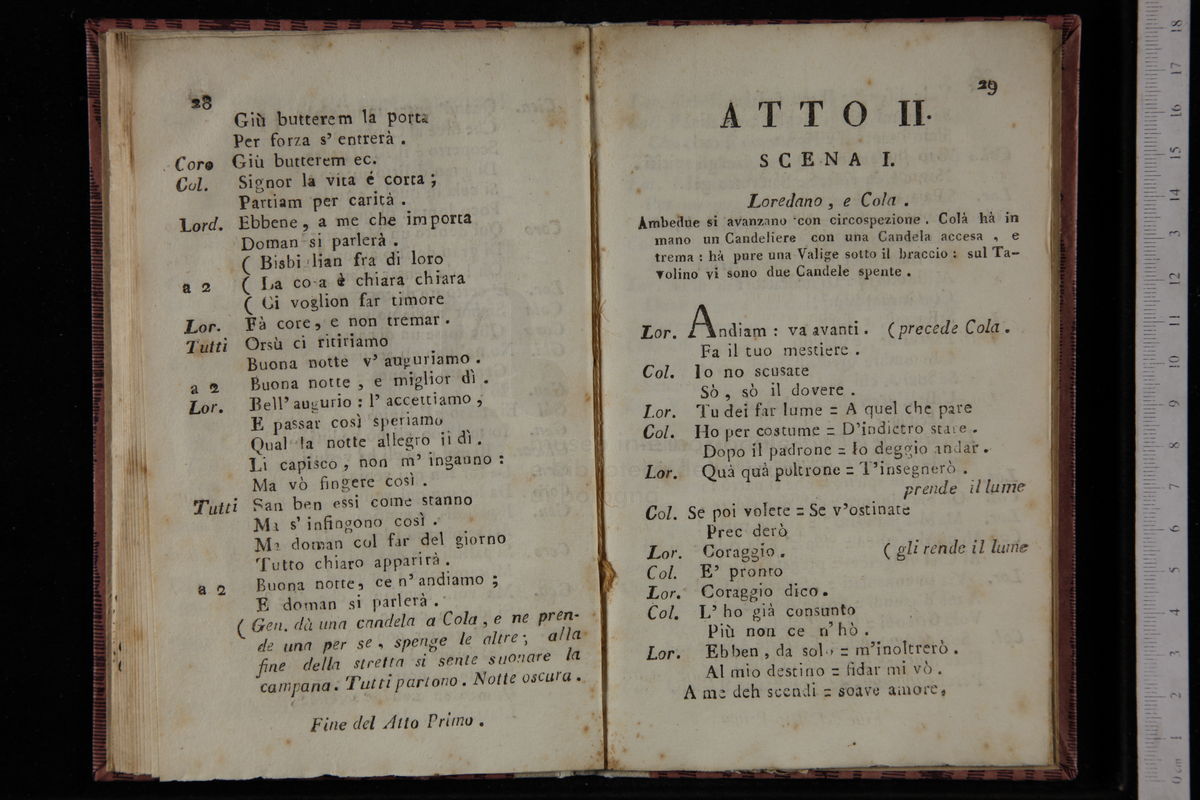 28
Giù butterem la porta
Per forza s' entrerà .
Coro Giù butterem ec.
Col. Signor la vita é corta ;
Partiam per carità .
Lord. Ebbene , a me che importa
Doman si parlerà .
( Bisbi lian fra di loro
a 2 ( La co a è chiara chiara
( Ci voglion far timore
Lor. Fà core , e non tremar .
Tutti Orsù ci ritiriamo
Buona notte v' auguriamo .
a 2 Buona notte , e miglior dì .
Lor. Bell' augurio : l' accettiamo ,
E passar così speriamo
Qual la notte allegro il dì .
Li capisco , non m' inganno :
Ma vò fingere così .
Tutti San ben essi come stanno
Ma s' infingono così .
Ma doman col far del giorno
Tutto chiaro apparirà .
a 2 Buona notte, ce n' andiamo ;
E doman si parlerà .
( Gen. dà una candela a Cola , e ne pren-
de una per se , spenge le altre ; alla
fine della stretta si sente suonare la
campana . Tutti partono . Notte oscura .
Fine del Atto Primo .
29
ATTO II.
SCENA I.
Loredano , e Cola .
Ambedue si avanzano con circospezione . Colà hà in
mano un Candeliere con una Candela accesa , e
trema : hà pure una Valige sotto il braccio : sul Ta-
volino vi sono due Candele spente .
Lor. Andiam : va avanti . ( precede Cola .
Fa il tuo mestiere .
Col. Io no scusate
Sò , sò il dovere .
Lor. Tu dei far lume = A quel che pare
Col. Ho per costume = D'indietro stare .
Dopo il padrone = Io deggio andar .
Lor. Quà quà poltrone = T'insegnerò .
prende il lume
Col. Se poi volete = Se v'ostinate
Prec derò
Lor. Coraggio . ( gli rende il lume
Col. E' pronto
Lor. Coraggio dico .
Col. L' ho già consunto
Più non ce n' hò .
Lor. Ebben , da solo = m'inoltrerò .
Al mio destino = fidar mi vò .
A me deh scendi = soave amore,